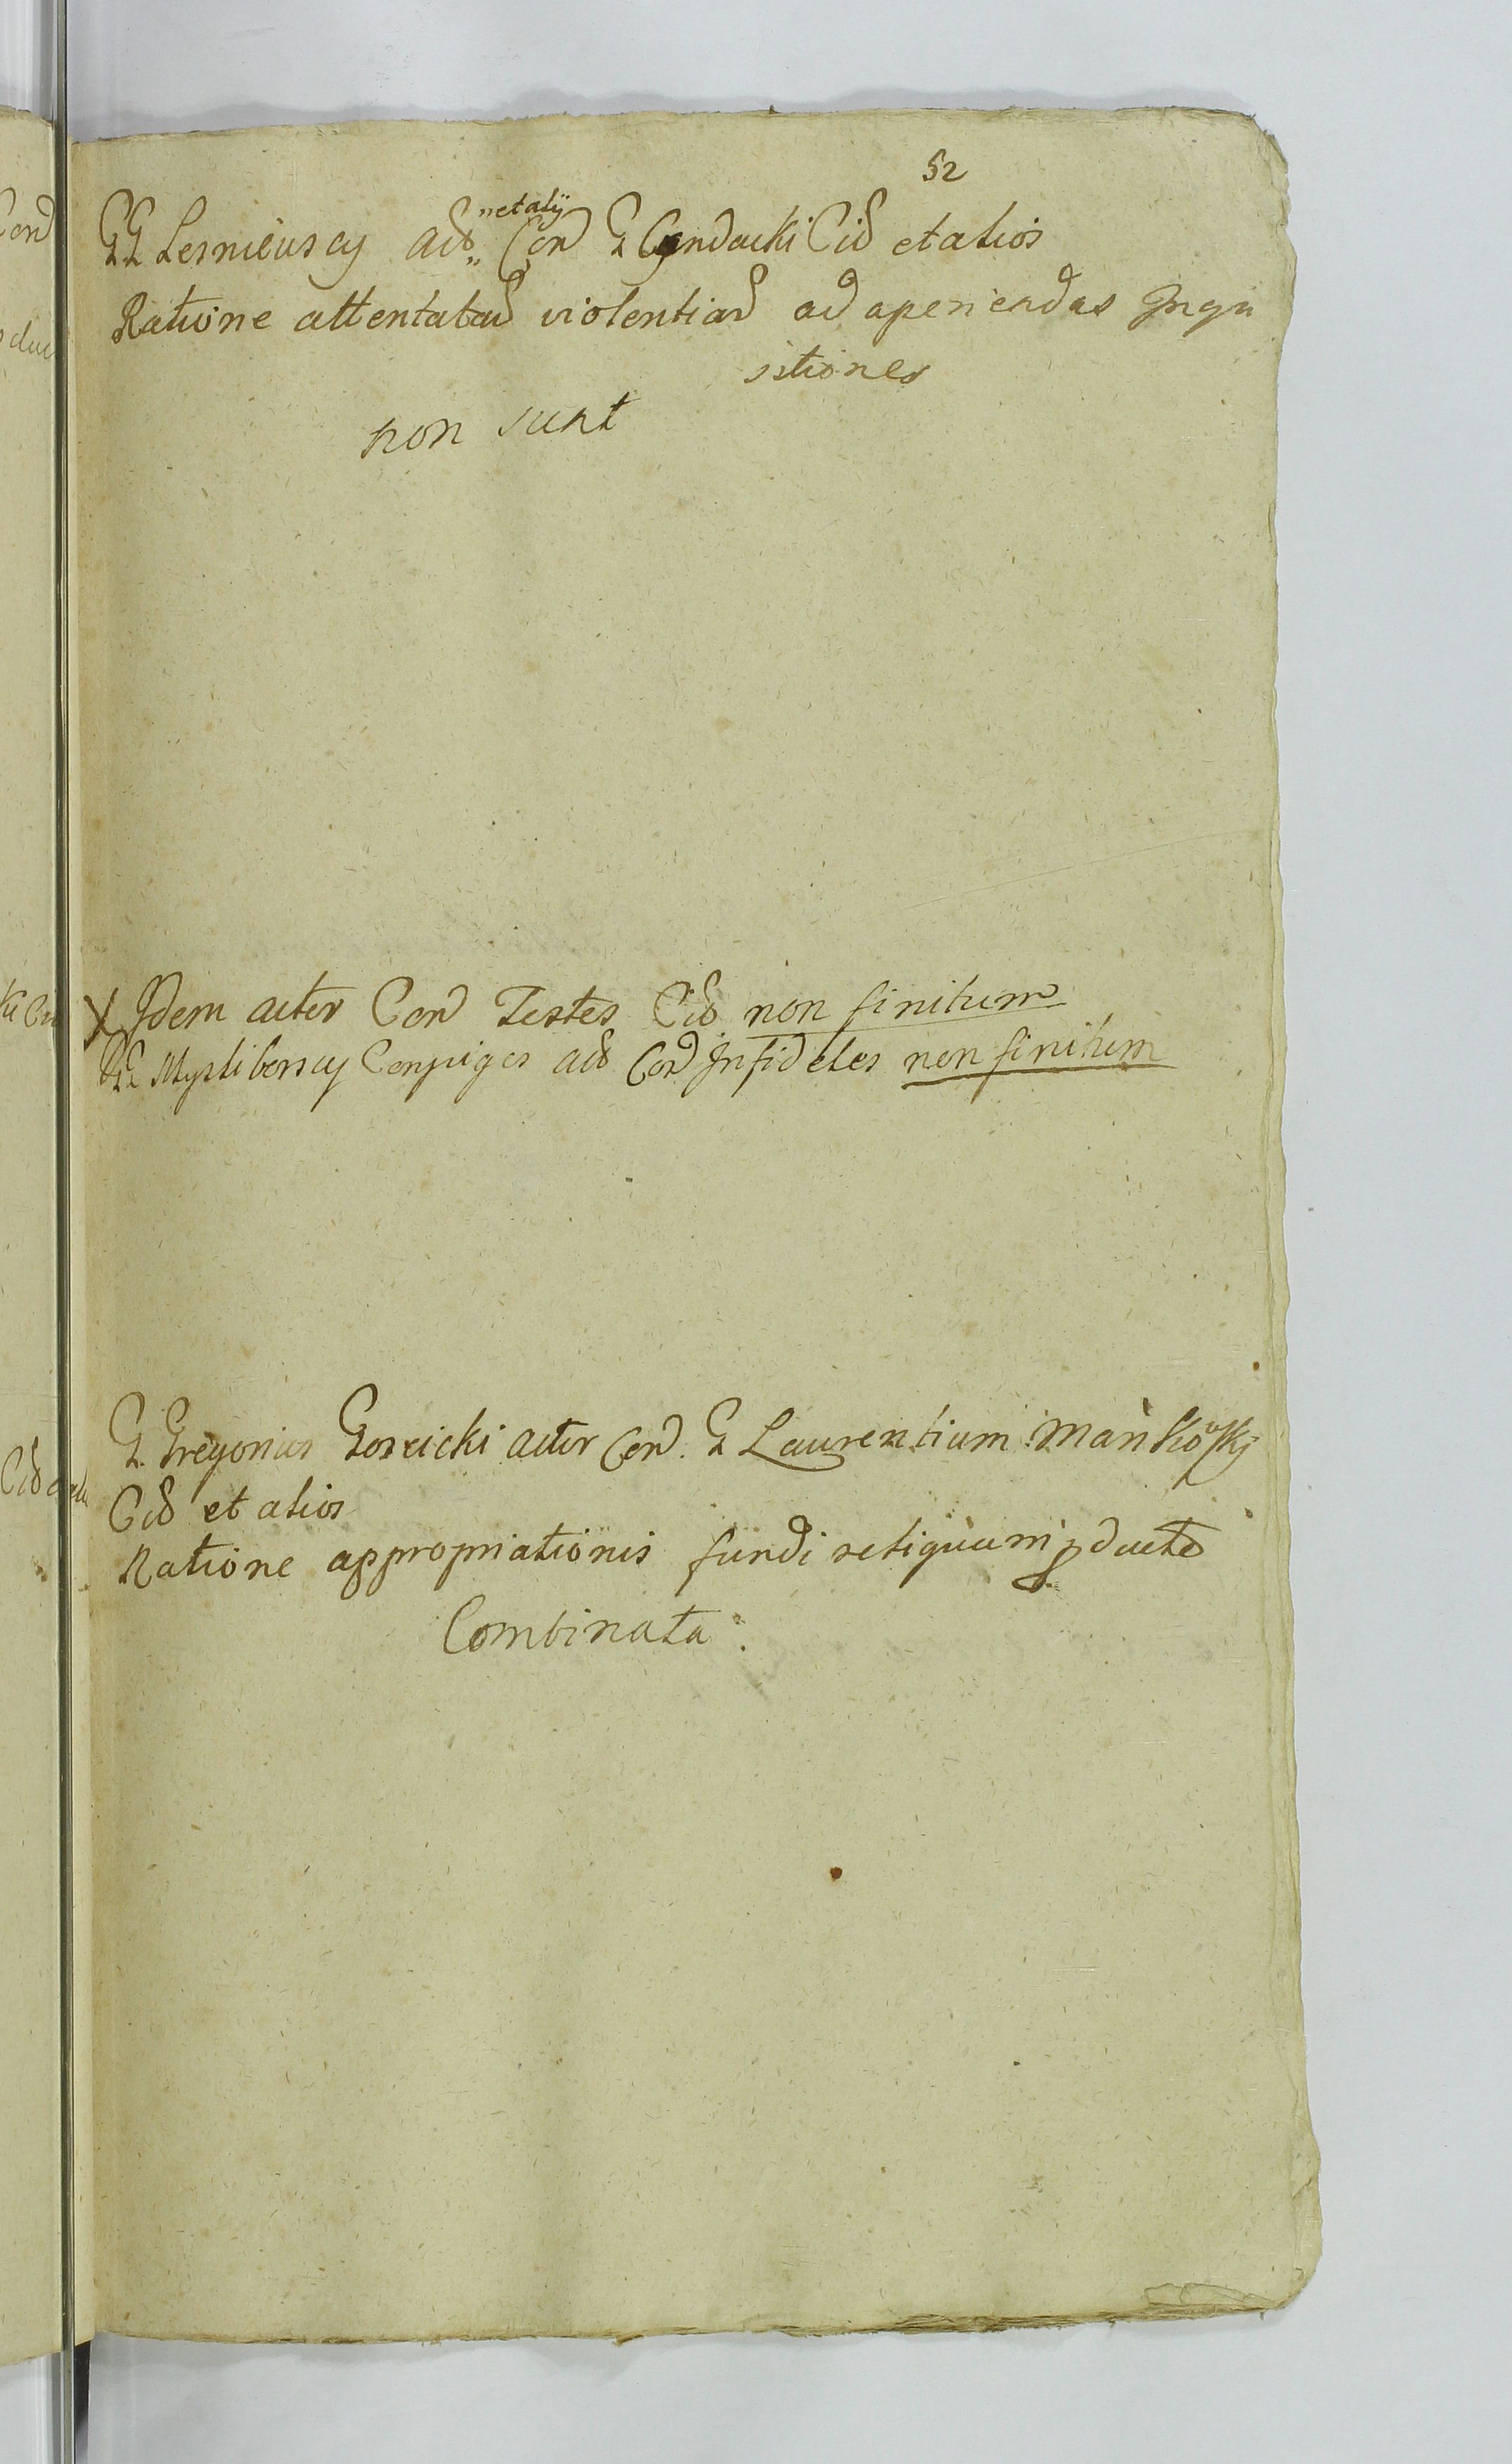 52
GG Lesniewscy Act „et alij Con G Gendacki Cit et alios
Ratione attentatar violentiar ad aperiendas Inqui
sitiones
non sunt
X Idem actor Con Testes Cit non finitum
GG Mysliborscy Conjuges Act Con Infideles non finitum
G. Gregorius Gorzicki actor Con. G Laurentium Mankowskj
Cit et alios
Ratione appropriationis fundi
Combinata.